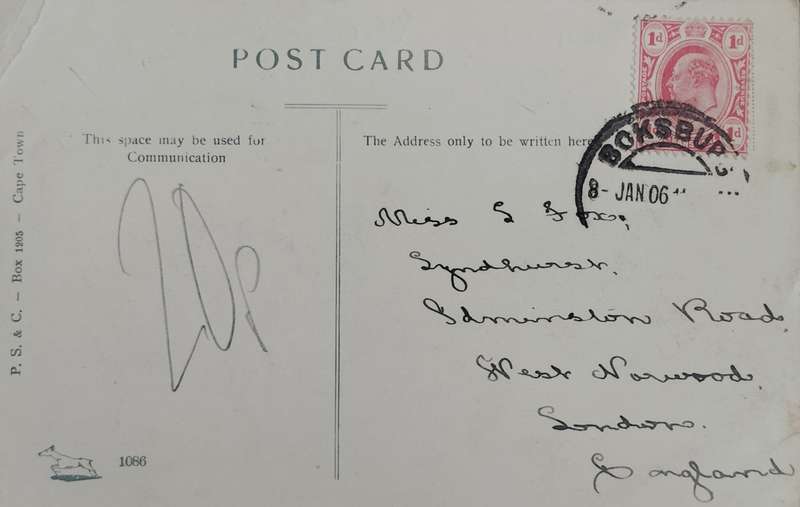 POST CARD
This space may be used for
Communication
The Address only to be written here
P. S. & C. — Box 1205 — Cape Town
1d 1d
1d
BOKSBUR
8- JAN 06
Miss S Fox,
Lyndhurst,
Edminston Road,
West Norwood,
London.
England
1086